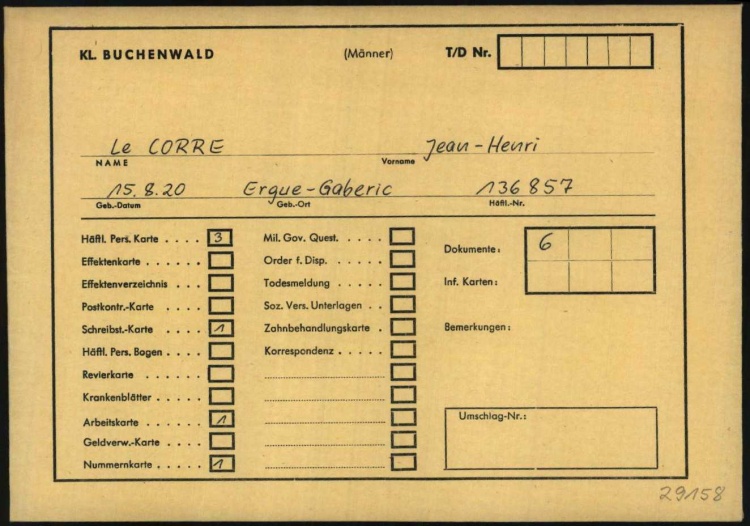 KL. BUCHENWALD (Männer) T/D Nr.
Le CORRE Jean-Henri
NAME Vorname
15.8.20 Ergue-Gaberic 136857
Geb.-Datum Geb.-Ort Häftl.-Nr.
Häftl. Pers. Karte . . . . 3
Effektenkarte . . . . .
Effektenverzeichnis . . .
Postkontr.-Karte . . . .
Schreibst.-Karte . . . . 1
Häftl. Pers. Bogen . . . .
Revierkarte . . . . . .
Krankenblätter . . . . .
Arbeitskarte . . . . . 1
Geldverw.-Karte . . . .
Nummernkarte . . . . . 1
Mil. Gov. Quest. . . . . .
Order f. Disp. . . . . .
Todesmeldung . . . . .
Soz. Vers. Unterlagen . .
Zahnbehandlungskarte .
Korrespondenz . . . . .
Dokumente: 6
Inf. Karten:
Bemerkungen:
Umschlag-Nr.:
29158